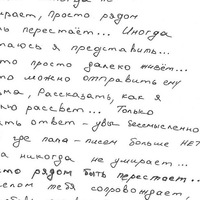 рает, просто рядом
ть перестаёт... Иногда
таюсь я представить...
что просто далеко живёт...
то можно отправить ему
ьма, Рассказать, как я
чаю рассвет... Только
ать ответ - увы бессмысленно
где папа - писем больше НЕТ
а никогда не умирает...
сто рядом быть перестает...
елом тебя сопровождает,